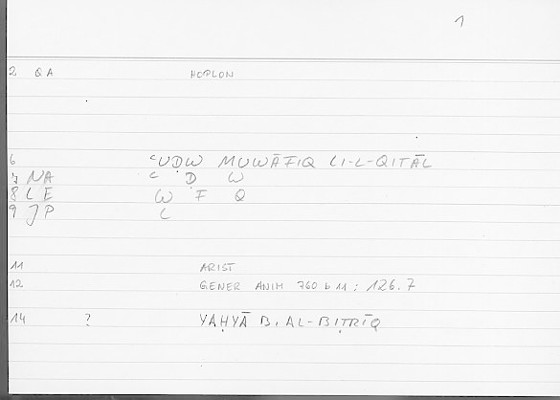 1
2 QA HOPLON
6 ʿUDW MUWĀFIQ LI-L-QITĀL
7 NA ʿ D W
8 LE W F Q
9 JP L
11 ARIST
12 GENER ANIM 760 b 11 : 126.7
14 ? YAḤYĀ B. AL-BIṬRĪQ